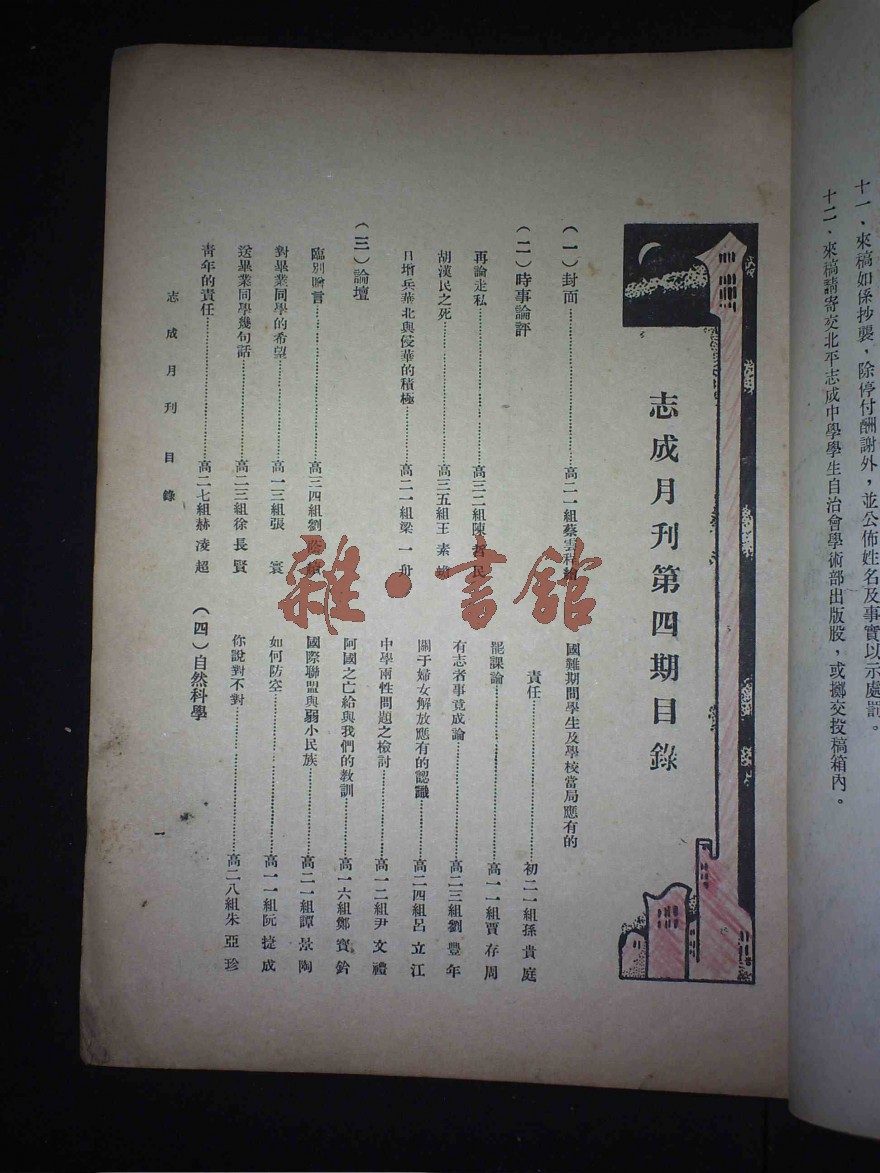 十一、來稿如係抄襲，除停付酬謝外，並公佈姓名及事實以示處罰。
十二、來稿請寄交北平志成中學學生自治會學術部出版股，或擲交投稿箱內。
志成月刊第四期目錄
（一）封面……高二一組蔡雲程
（二）時事論評
再論走私……高三二組陳哲民
胡漢民之死……高三五組王素
日增兵華北與侵華的積極……高二一組梁一舟
（三）論壇
臨別贈言……高三四組劉
對畢業同學的希望……高一三組張寰
送畢業同學幾句話……高二三組徐長賢
青年的責任……高二七組赫凌超
國難期間學生及學校當局應有的
責任……初二一組孫貴庭
罷課論……高一一組賈存周
有志者事竟成論……高二三組劉豐年
關于婦女解放應有的認識……高二四組呂立江
中學兩性問題之檢討……高一二組尹文禮
阿國之亡給與我們的教訓……高一六組鄭寶鈴
國際聯盟與弱小民族……高二一組譚景陶
如何防空……高一一組阮捷成
你說對不對……高二八組朱亞珍
（四）自然科學
志成月刊 目錄
一
雜·書館